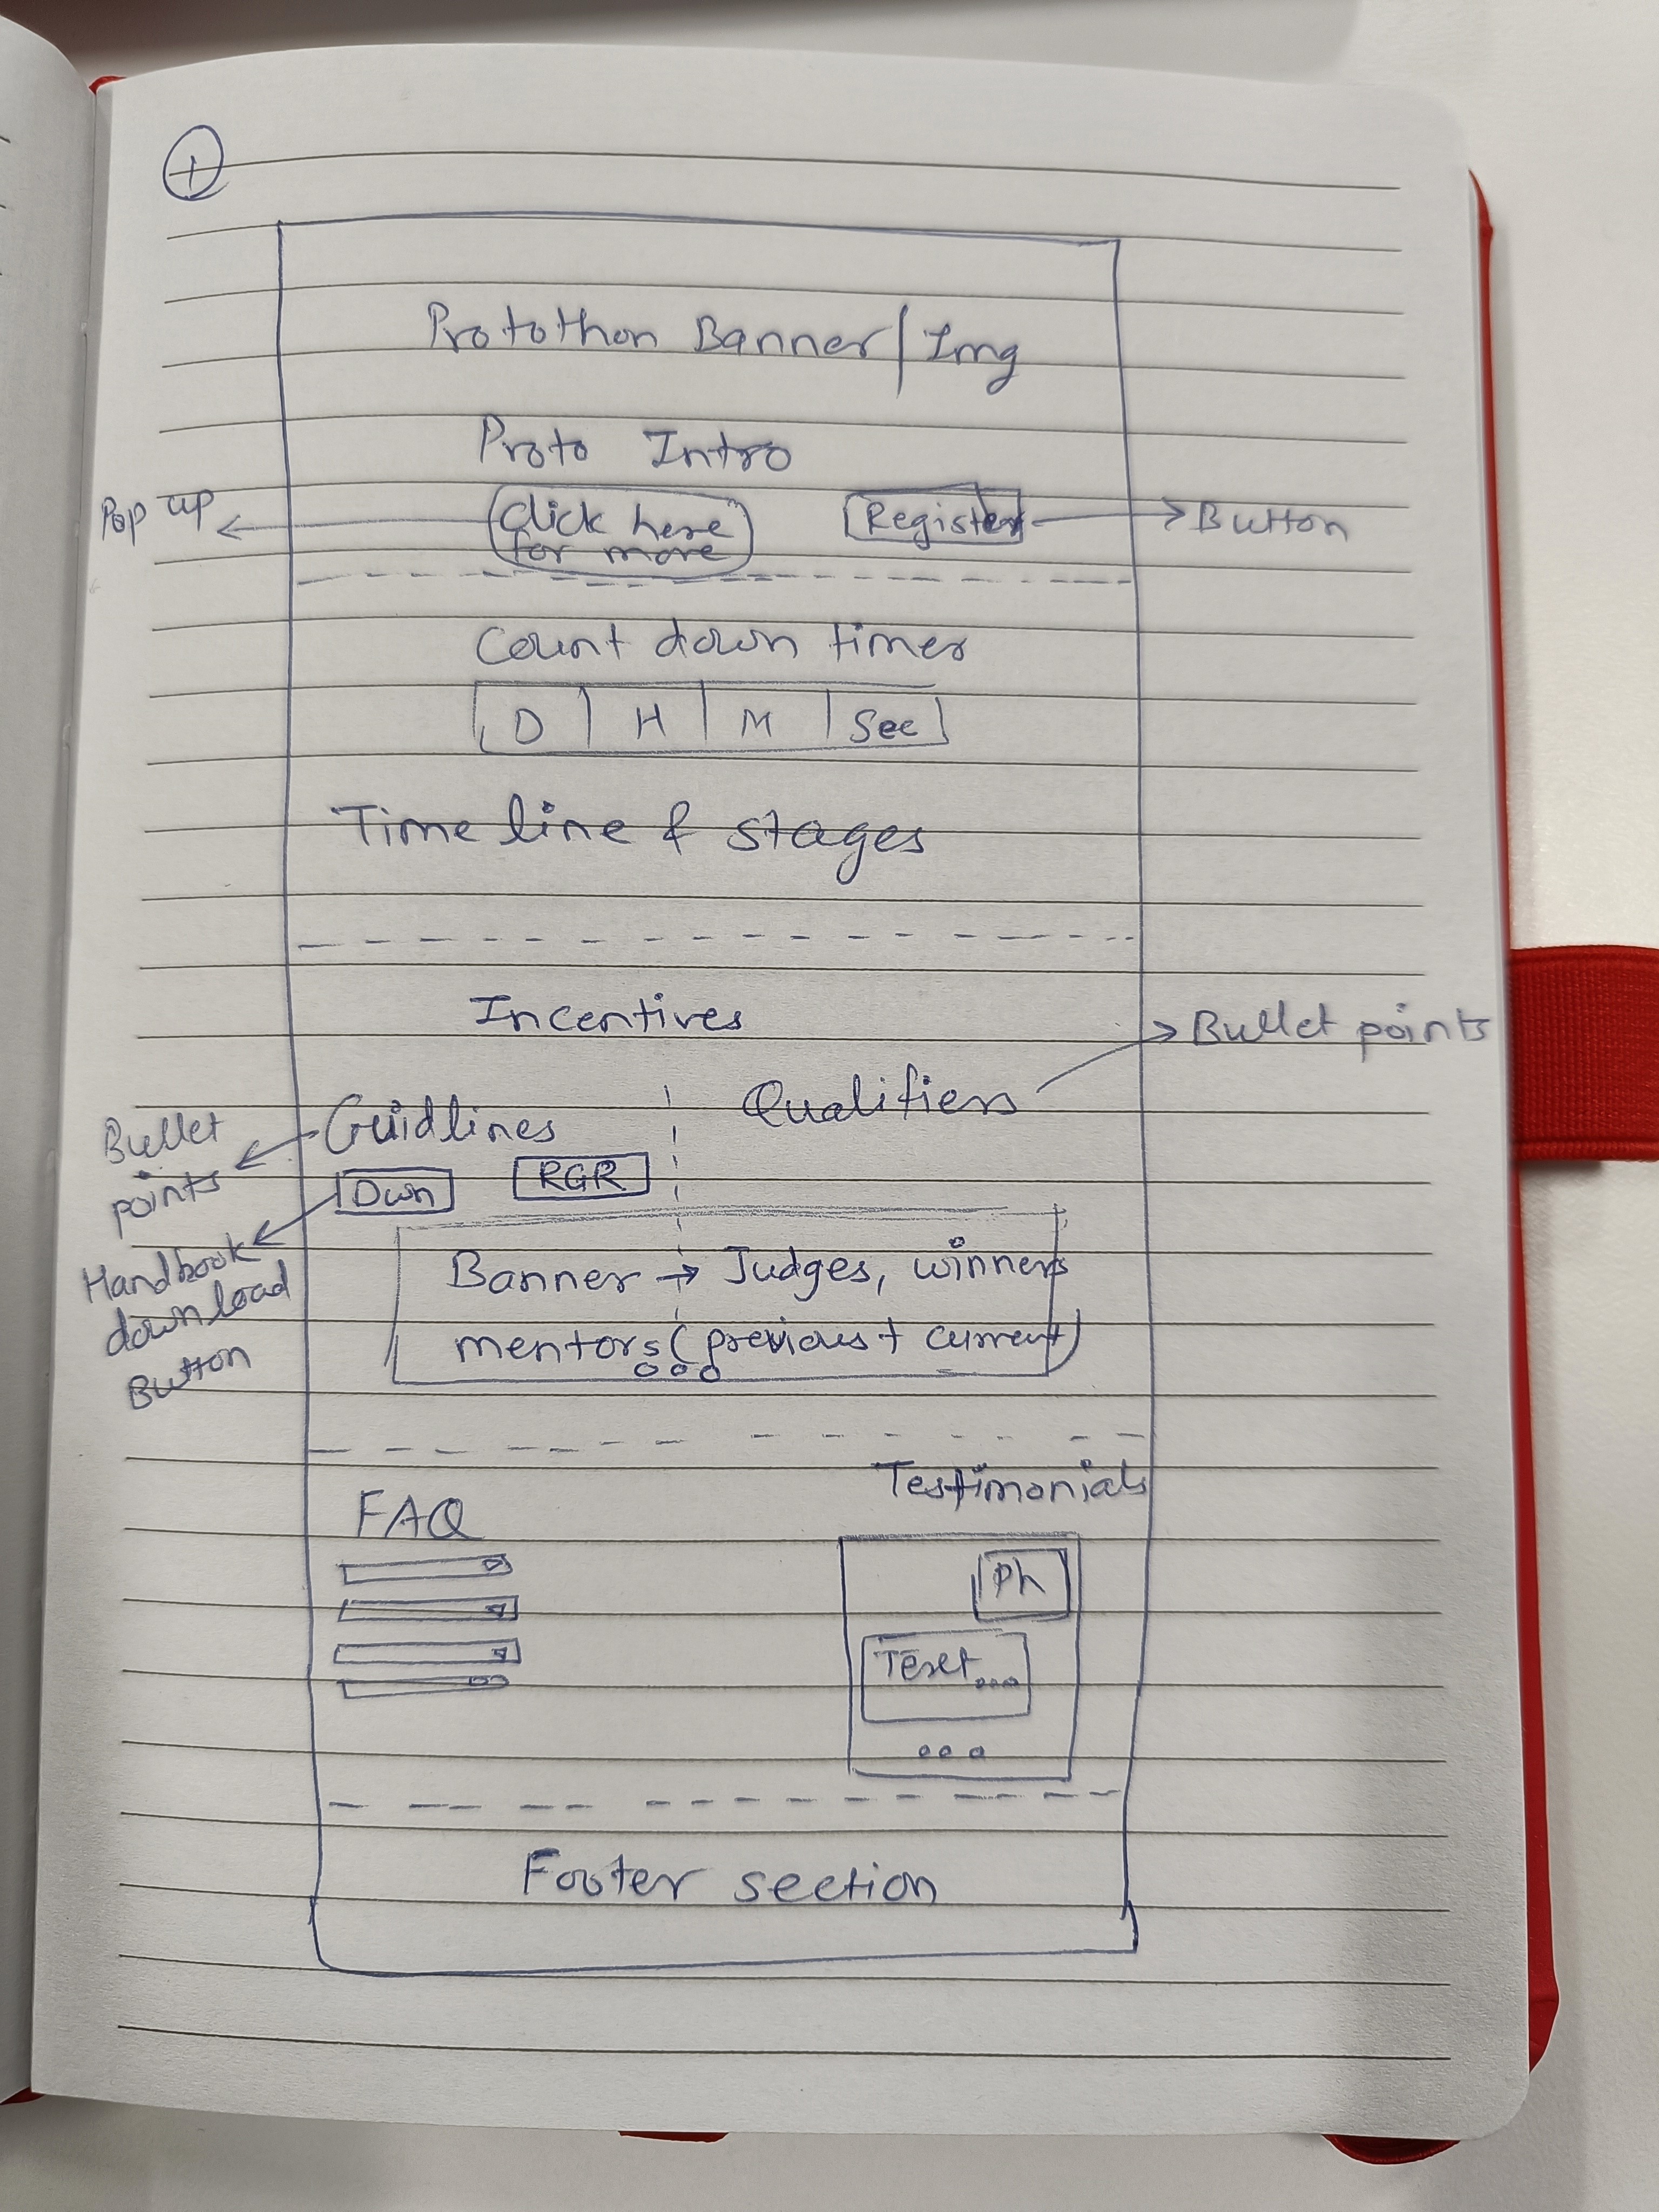 1
Protothon Banner/Img
Proto Intro
Pop up
Click here
for more
Register
Button
Count down timer
D H M Sec
Time line & stages
Incentives
Bullet points
Qualifiers
Guidlines
Bullet
points
Dwn
RGR
Handbook
download
Button
Banner → Judges, winners
mentors (previous + current)
Testimonials
FAQ
Ph
Text...
Footer section